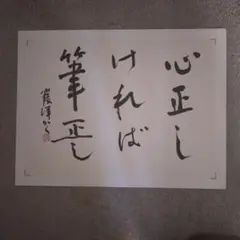 心正し
ければ
筆正し